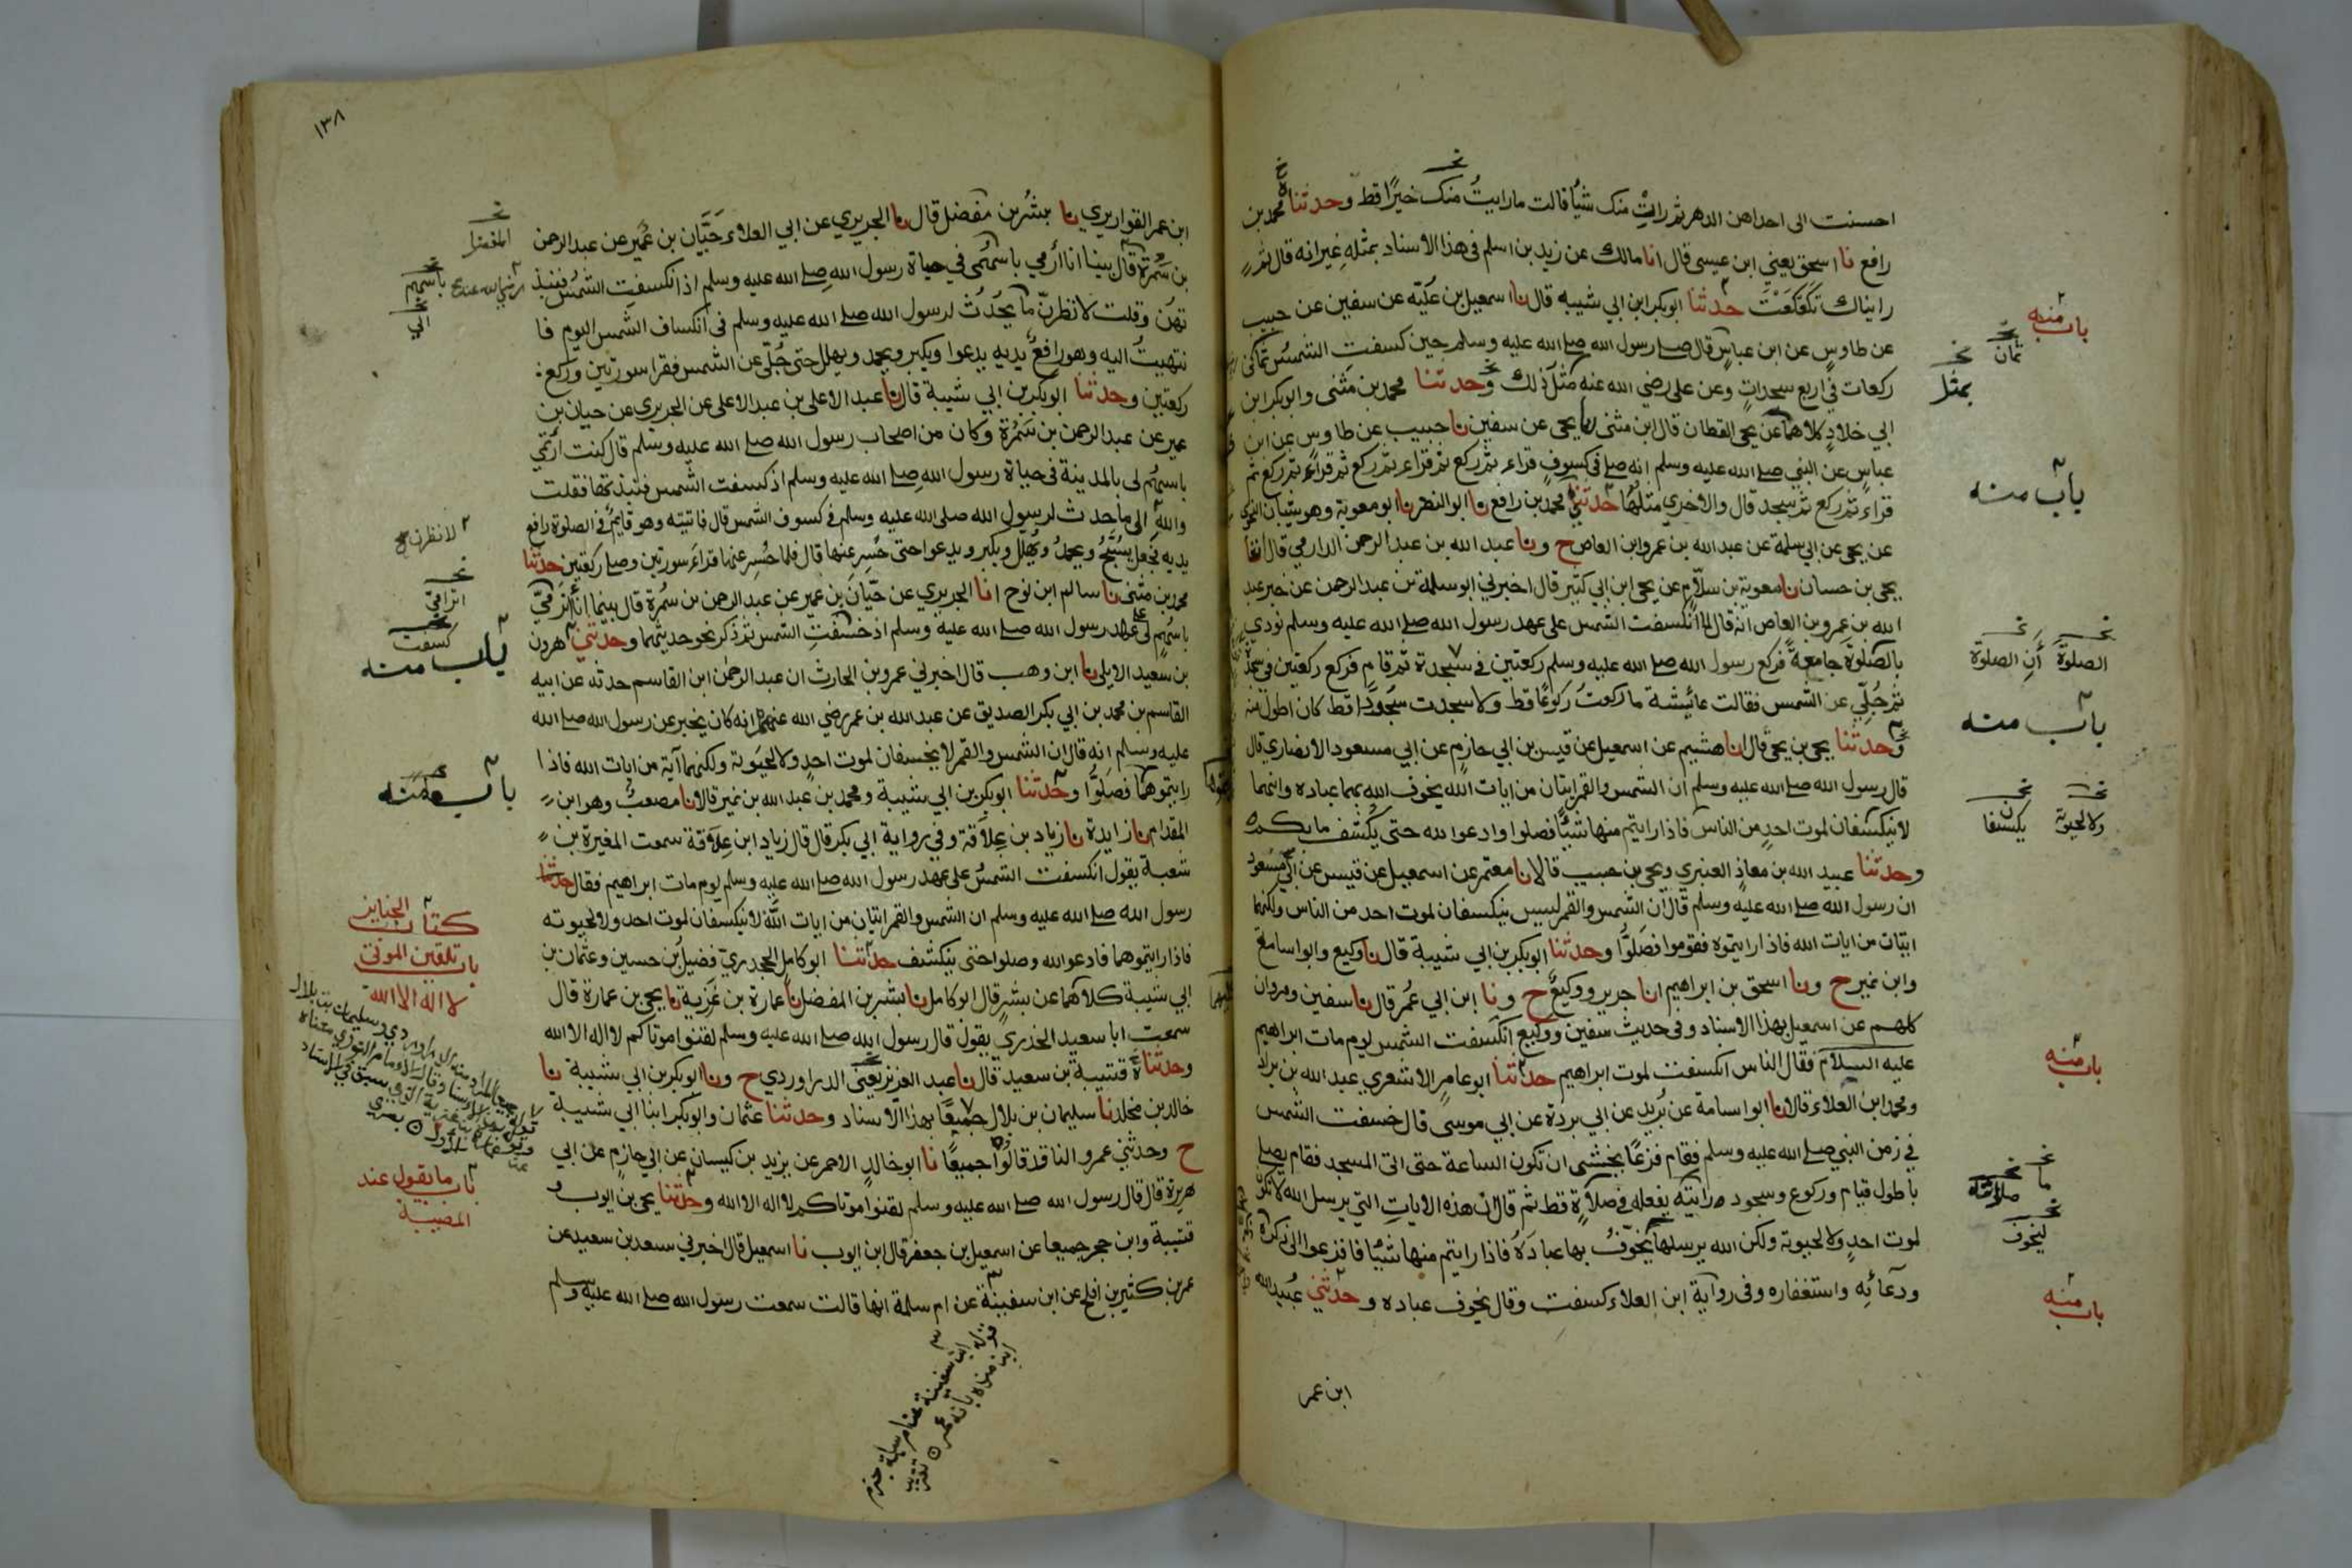 احسنت الى احداهن الدهر ثم رات منك شيأ قالت ما رايت منك خيرًا قط وحدثنا محمد بن
رافع نا اسحق يعني ابن عيسى قال انا مالك عن زيد بن اسلم في هذا الاسناد بمثله غير انه قال ثم
رايناك تكعكعت حدثنا ابوبكر ابن ابي شيبه قال نا اسمعيل بن علية عن سفين عن حبيب
عن طاوس عن ابن عباس قال صلى رسول الله صلى الله عليه وسلم حين كسفت الشمس ثماني
ركعات في اربع سجدات وعن علي رضي الله عنه مثل ذلك وحدثنا محمد بن مثنى وابوبكر ابن
ابي خلاد كلاهما عن يحيى القطان قال ابن مثنى نا يحيى عن سفين نا حبيب عن طاوس عن ابن
عباس عن النبي صلى الله عليه وسلم انه صلى في كسوف قراء ثم ركع ثم قراء ثم ركع ثم قراء ثم ركع ثم
قراء ثم ركع ثم سجد قال والاخرى مثلها حدثني محمد بن رافع نا ابو النضر نا ابو معوية وهو شيبان النحوي
عن يحيى عن ابي سلمة عن عبد الله بن عمرو ابن العاص ح ونا عبد الله بن عبد الرحمن الدارمي قال انا
يحيى بن حسان نا معوية بن سلام عن يحيى ابن ابي كثير قال اخبرني ابو سلمة بن عبد الرحمن عن خبر عبد
الله بن عمرو بن العاص انه قال لما انكسفت الشمس على عهد رسول الله صلى الله عليه وسلم نودي
بالصلوة جامعة فركع رسول الله صلى الله عليه وسلم ركعتين في سجدة ثم قام فركع ركعتين في سجدة
ثم جلي عن الشمس فقالت عائشة ما ركعت ركوعًا قط ولا سجدت سجودًا قط كان اطول منه
وحدثنا يحيى بن يحيى قال انا هشيم عن اسمعيل عن قيس بن ابي حازم عن ابي مسعود الانصاري قال
قال رسول الله صلى الله عليه وسلم ان الشمس والقمر ايتان من ايات الله يخوف الله بهما عباده وانهما
لا ينكسفان لموت احد من الناس فاذا رايتم منها شيئًا فصلوا وادعوا الله حتى يكشف ما بكم
وحدثنا عبيد الله بن معاذ العنبري ويحيى بن حبيب قالا نا معتمر عن اسمعيل عن قيس عن ابي مسعود
ان رسول الله صلى الله عليه وسلم قال ان الشمس والقمر ليس ينكسفان لموت احد من الناس ولكنهما
ايتان من ايات الله فاذا رايتموه فقوموا فصلوا وحدثنا ابوبكر بن ابي شيبة قال نا وكيع وابو اسامة
وابن نمير ح ونا اسحق بن ابراهيم انا جرير ووكيع ح ونا ابن ابي عمر قال نا سفين ومروان
كلهم عن اسمعيل بهذا الاسناد وفي حديث سفين ووكيع انكسفت الشمس يوم مات ابراهيم
عليه السلام فقال الناس انكسفت لموت ابراهيم حدثنا ابو عامر الاشعري عبد الله بن براد
ومحمد ابن العلاء قالا نا ابو اسامة عن بريد عن ابي بردة عن ابي موسى قال خسفت الشمس
في زمن النبي صلى الله عليه وسلم فقام فزعًا يخشى ان تكون الساعة حتى اتى المسجد فقام يصلي
باطول قيام وركوع وسجود رايته يفعله في صلاة قط ثم قال ان هذه الايات التي يرسل الله لا تكون
لموت احد ولا لحيوته ولكن الله يرسلها يخوف بها عباده فاذا رايتم منها شيئًا فافزعوا الى ذكره
ودعائه واستغفاره وفي رواية ابن العلاء كسفت وقال يخوف عباده وحدثني عبيد الله
ابن عمر
باب منه
ثمان
بمثل
باب منه
الصلوة
أن الصلوة
باب منه
ولا لحيوته
يكسفان
باب منه
ما
صلاته
ليخوف
باب منه
١٣٨
ابن عمر القواريري نا بشر بن مفضل قال نا الجريري عن ابي العلاء حيان بن عمير عن عبد الرحمن
بن سمرة قال بينا انا ارمي باسهمي في حياة رسول الله صلى الله عليه وسلم اذ انكسفت الشمس فنبذ
تهن وقلت لانظرن ما يحدث لرسول الله صلى الله عليه وسلم في انكساف الشمس اليوم فا
نتهيت اليه وهو رافع يديه يدعوا ويكبر ويحمد ويهلل حتى جلي عن الشمس فقرا سورتين وركع
ركعتين وحدثنا ابوبكر بن ابي شيبة قال نا عبد الاعلى بن عبد الاعلى عن الجريري عن حيان بن
عمير عن عبد الرحمن بن سمرة وكان من اصحاب رسول الله صلى الله عليه وسلم قال كنت ارتمي
باسهم لي بالمدينة في حياة رسول الله صلى الله عليه وسلم اذ كسفت الشمس فنبذتها فقلت
والله الى ما حدث لرسول الله صلى الله عليه وسلم في كسوف الشمس قال فاتيته وهو قايم في الصلوة رافع
يديه فجعل يسبح ويحمد ويهلل ويكبر ويدعوا حتى حسر عنها قال فلما حسر عنها قراء سورتين وصلى ركعتين حدثنا
محمد بن مثنى نا سالم ابن نوح انا الجريري عن حيان بن عمير عن عبد الرحمن بن سمرة قال بينما انا اترمى
باسهم لي على عهد رسول الله صلى الله عليه وسلم اذ خسفت الشمس ثم ذكر نحو حديثهما وحدثني هرون
بن سعيد الايلي نا ابن وهب قال اخبرني عمرو بن الحارث ان عبد الرحمن ابن القاسم حدثه عن ابيه
القاسم بن محمد بن ابي بكر الصديق عن عبد الله بن عمر رضي الله عنهما انه كان يخبر عن رسول الله صلى الله
عليه وسلم انه قال ان الشمس والقمر لا يخسفان لموت احد ولا لحيوته ولكنهما آية من ايات الله فاذا
رايتموهما فصلوا وحدثنا ابوبكر بن ابي شيبة ومحمد بن عبد الله بن نمير قالا نا مصعب وهو ابن
المقدام نا زايدة نا زياد بن علاقة وفي رواية ابي بكر قال قال زياد ابن علاقة سمعت المغيرة بن
شعبة يقول انكسفت الشمس على عهد رسول الله صلى الله عليه وسلم يوم مات ابراهيم فقال
رسول الله صلى الله عليه وسلم ان الشمس والقمر ايتان من ايات الله لا ينكسفان لموت احد ولا لحيوته
فاذا رايتموهما فادعوا الله وصلوا حتى ينكشف حدثنا ابو كامل الجحدري فضيل بن حسين وعثمان بن
ابي شيبة كلاهما عن بشر قال ابو كامل نا بشر بن المفضل نا عمارة بن غزية نا يحيى بن عمارة قال
سمعت ابا سعيد الخدري يقول قال رسول الله صلى الله عليه وسلم لقنوا موتاكم لا اله الا الله
وحدثناه قتيبة بن سعيد قال نا عبد العزيز يعني الدراوردي ح ونا ابوبكر بن ابي شيبة نا
خالد بن مخلد نا سليمان بن بلال جميعًا بهذا الاسناد وحدثنا عثمان وابوبكر ابنا ابي شيبة
ح وحدثني عمرو الناقد قالوا جميعًا نا ابو خالد الاحمر عن يزيد بن كيسان عن ابي حازم عن ابي
هريرة قال قال رسول الله صلى الله عليه وسلم لقنوا موتاكم لا اله الا الله وحدثنا يحيى بن ايوب و
قتيبة وابن حجر جميعا عن اسمعيل بن جعفر قال ابن ايوب نا اسمعيل قال اخبرني سعد بن سعيد عن
عمر بن كثير بن افلح عن ابن سفينة عن ام سلمة انها قالت سمعت رسول الله صلى الله عليه وسلم
المفضل
باسهم
لانظرن
اترامى
كسفت
باب منه
باب منه
كتاب الجنايز
باب تلقين الموتى
لا اله الا الله
باب ما يقول عند
المصيبة
قوله ابن سفينة عن ام سلمة جزم
ابن منده بانه عمر تقريب